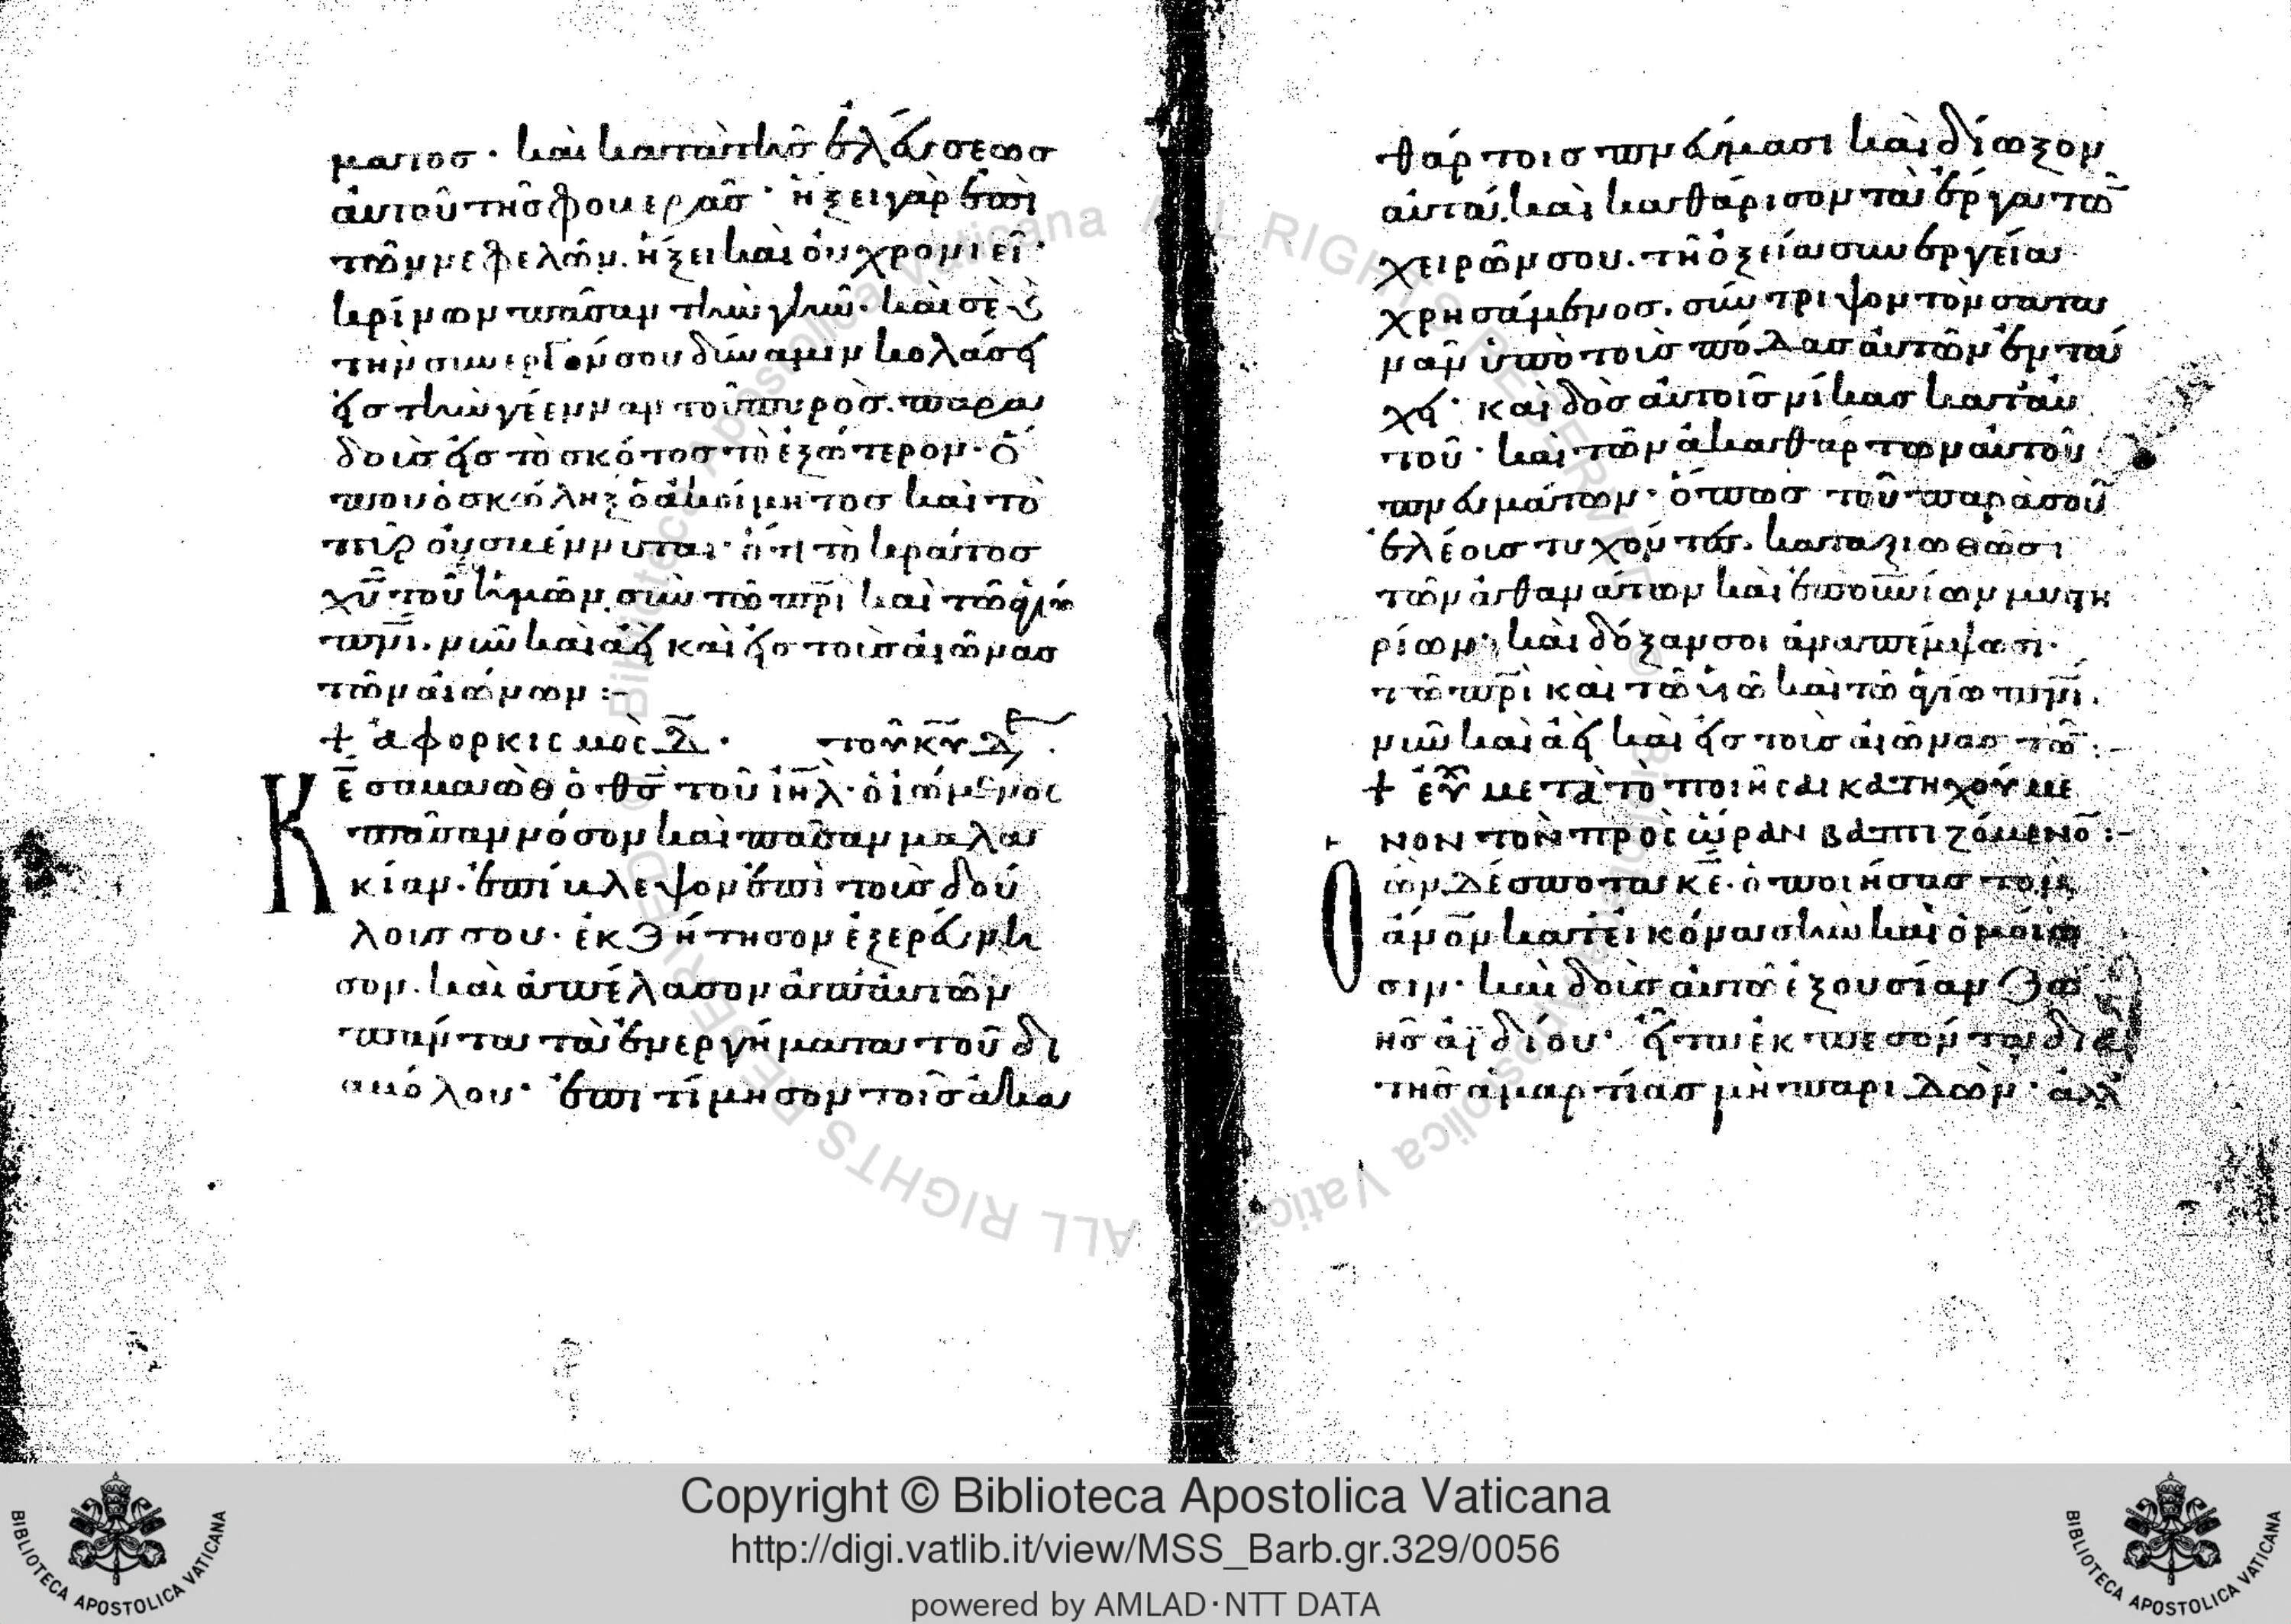 ματος· καὶ κατὰ τῆς ἐλεύσεως
αὐτοῦ τῆς φοβερᾶς· ἥξει γὰρ ἐπὶ
τῶν νεφελῶν. ἥξει καὶ οὐ χρονιεῖ·
κρίνων πᾶσαν τὴν γῆν· καὶ σὲ καὶ
τὴν συνεργόν σου δύναμιν κολάσει
εἰς τὴν γέενναν τοῦ πυρὸς. παρα
δοὺς εἰς τὸ σκότος τὸ ἐξώτερον· ὅ
που ὁ σκώληξ ὁ ἀκοίμητος καὶ τὸ
πῦρ οὐ σβέννυται· ὅτι τὸ κράτος
χῦ τοῦ θῦ ἡμῶν. σὺν τῶ πρὶ καὶ τῶ ἁγίω
πνι. νῦν καὶ ἀεὶ καὶ εἰς τοὺς αἰῶνας
τῶν αἰώνων :-
+ ἀφορκισμὸς Δ· τοῦ κυ Δ
Κε σαβαὼθ ὁ θς τοῦ ἰηλ· ὁ ἰώμενος
πᾶσαν νόσον καὶ πᾶσαν μαλα
κίαν. ἐπίβλεψον ἐπὶ τοὺς δού
λους σου· ἐκζήτησον ἐξεραύνη
σον. καὶ ἀπέλασον ἀπ' αὐτῶν
πάντα τὰ ἐνεργήματα τοῦ δι
αβόλου· ἐπιτίμησον τοῖς ἀκα
θάρτοις πνεύμασι καὶ δίωξον
αὐτά. καὶ καθάρισον τὰ ἔργα τῶ
χειρῶν σου. τῆ ὀξεία συνεργεία
χρησάμενος. σύντριψον τὸν σατα
νᾶν ὑπὸ τοὺς πόδας αὐτῶν ἐν τά
χει· καὶ δὸς αὐτοῖς νίκας κατ' αὐ
τοῦ· καὶ τῶν ἀκαθάρτων αὐτοῦ
πνευμάτων· ὅπως τοῦ παρὰ σοῦ
ἐλέους τυχόντες. καταξιωθῶσι
τῶν ἀθανάτων καὶ ἐπουνίων μυστη
ρίων· καὶ δόξαν σοι ἀναπέμψωσι·
τῶ πρὶ καὶ τῶ υἱῶ καὶ τῶ ἁγίω πνι.
νῦν καὶ ἀεὶ καὶ εἰς τοὺς αἰῶνας τῶ :-
+ εὐχ μετὰ τὸ ποιῆσαι κατηχούμε
νον τὸν πρὸς ὥραν βαπτιζόμενο :-
Ο ὢν δέσποτα κε· ὁ ποιήσας τὸν
ἄνον κατ' εἰκόνα σὴν καὶ ὁμοίω
σιν· καὶ δοὺς αὐτῶ ἐξουσίαν ζω
ῆς ἀϊδίου· εἶτα ἐκπεσόντα διὰ
τῆς ἁμαρτίας μὴ παριδών· ἀλλ
Copyright © Biblioteca Apostolica Vaticana
http://digi.vatlib.it/view/MSS_Barb.gr.329/0056
powered by AMLAD·NTT DATA